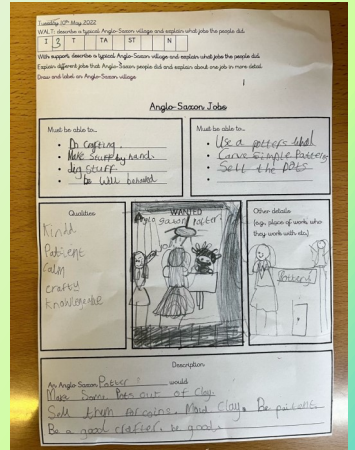 Tuesday 10th May 2022
WALT: describe a typical Anglo-Saxon village and explain what jobs the people did.
I 3 T TA ST N
With support describe a typical Anglo-Saxon village and explain what jobs the people did.
Explain different jobs that Anglo-Saxon people did and explain about one job in more detail.
Draw and label an Anglo-Saxon village
Anglo-Saxon Jobs
Must be able to...
• Do crafting.
• Make stuff by hand.
• stuff.
• be well behaved
Must be able to...
• Use a potters wheel
• Carve simple patterns
• Sell the pots
Qualities
Kind
Patient
calm
crafty
WANTED
Anglo saxon potter
Other details
(e.g. place of work, who
they work with etc)
Pottery
Description
An Anglo-Saxon Potter would
Make some Pots out of clay.
Sell them for coins. clay. Be patient.
Be a good crafter. be good.